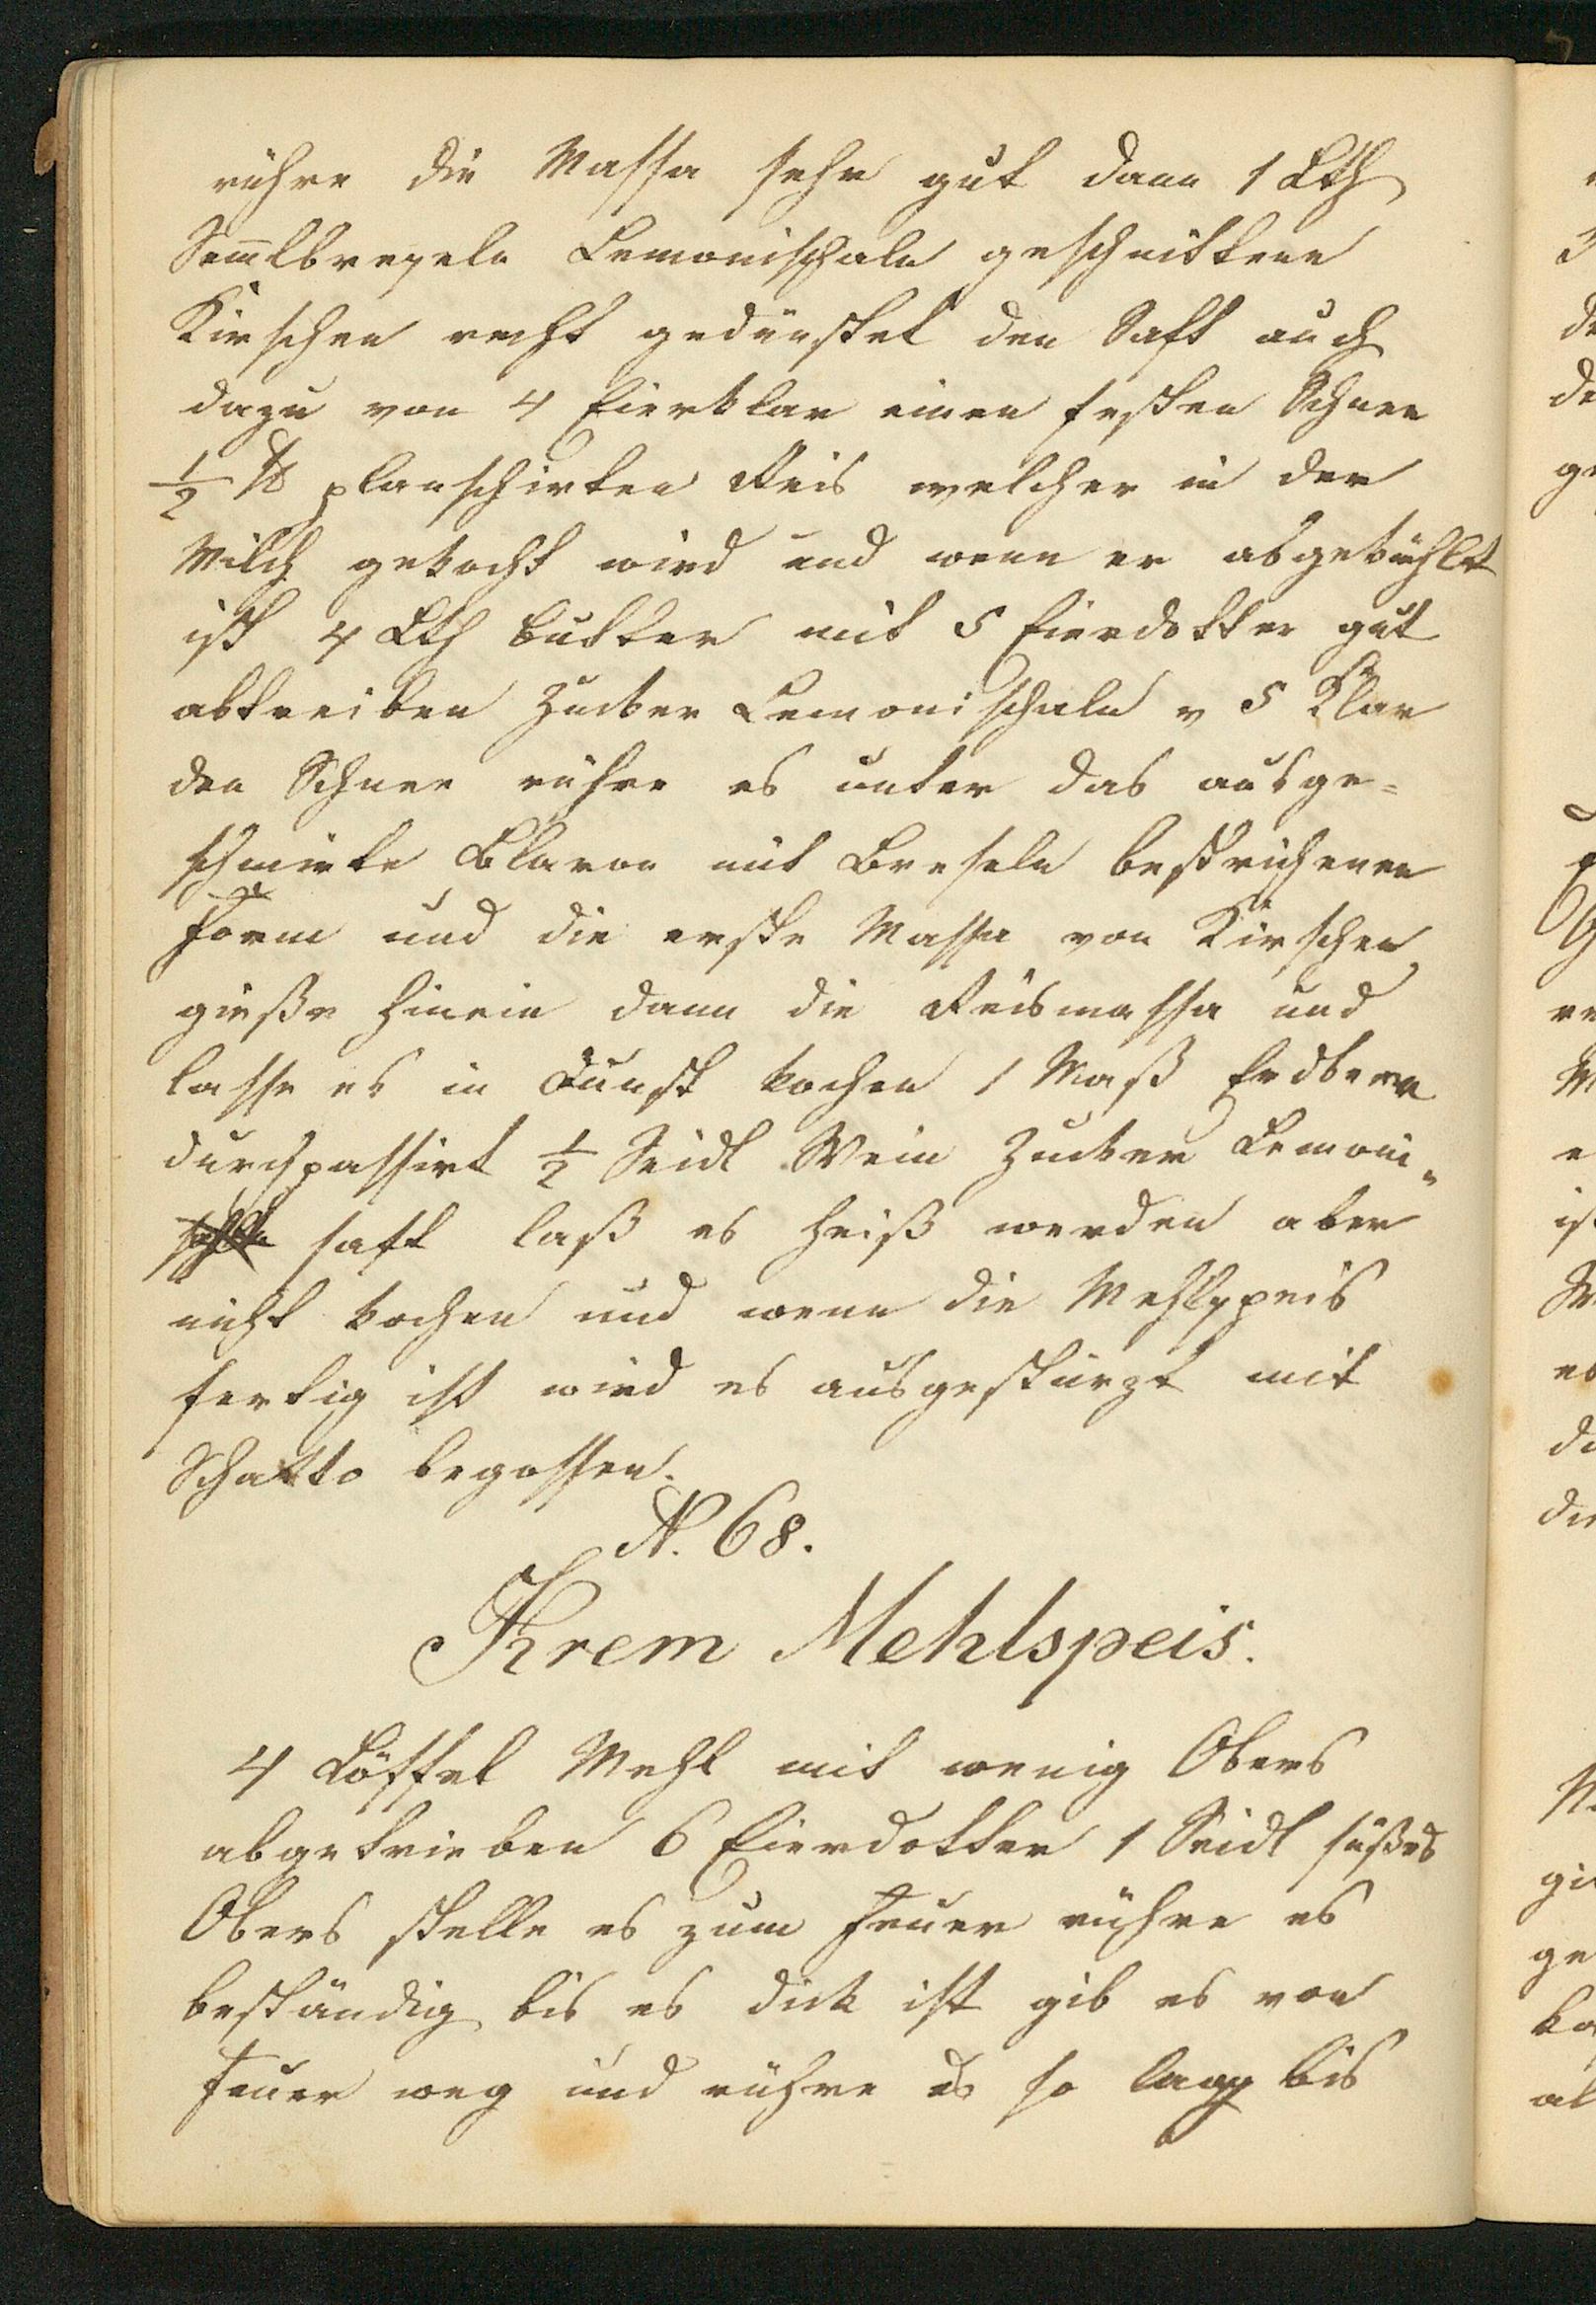 rühre die Massa sehr gut dann 1 Lth
Sem̅lbrepeln Lemonischaln geschnittene
Kirschen recht gedünstet den Saft auch
dazu von 4 Eierklar einen festen Schnee
½ ℔ planschirten Reis welcher in der
Milch gekocht wird und wenn er abgekühlt
ist 4 Lth Butter mit 5 Eierdotter gut
abtreiben Zucker Lemonischaln v 5 Klar
den Schnee rühre es unter das ausge=
schmirte mit Breseln bestrichenen
Form und die erste Massa von Kirschen
gieße hinein dann die Reismassa und
lasse es in Dunst kochen 1 Maß Erdbern
durchpassirt ½ Seidl Wein Zucker Lemoni=
saft laß es heiß werden aber
nicht kochen und wenn die Mehlspeis
fertig ist wird es ausgestürzt mit
Schatto begossen.
N. 68.
Krem Mehlspeis.
4 Löffel Mehl mit wenig Obers
abgetrieben 6 Eierdotter 1 Seidl süßes
Obers stelle es zum Feuer rühre es
beständig bis es dick ist gib es von
Feuer weg und rühre es so lang bis